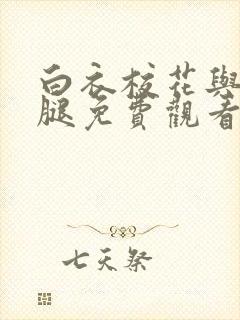 白衣校花與
腿免費觀看
七天祭